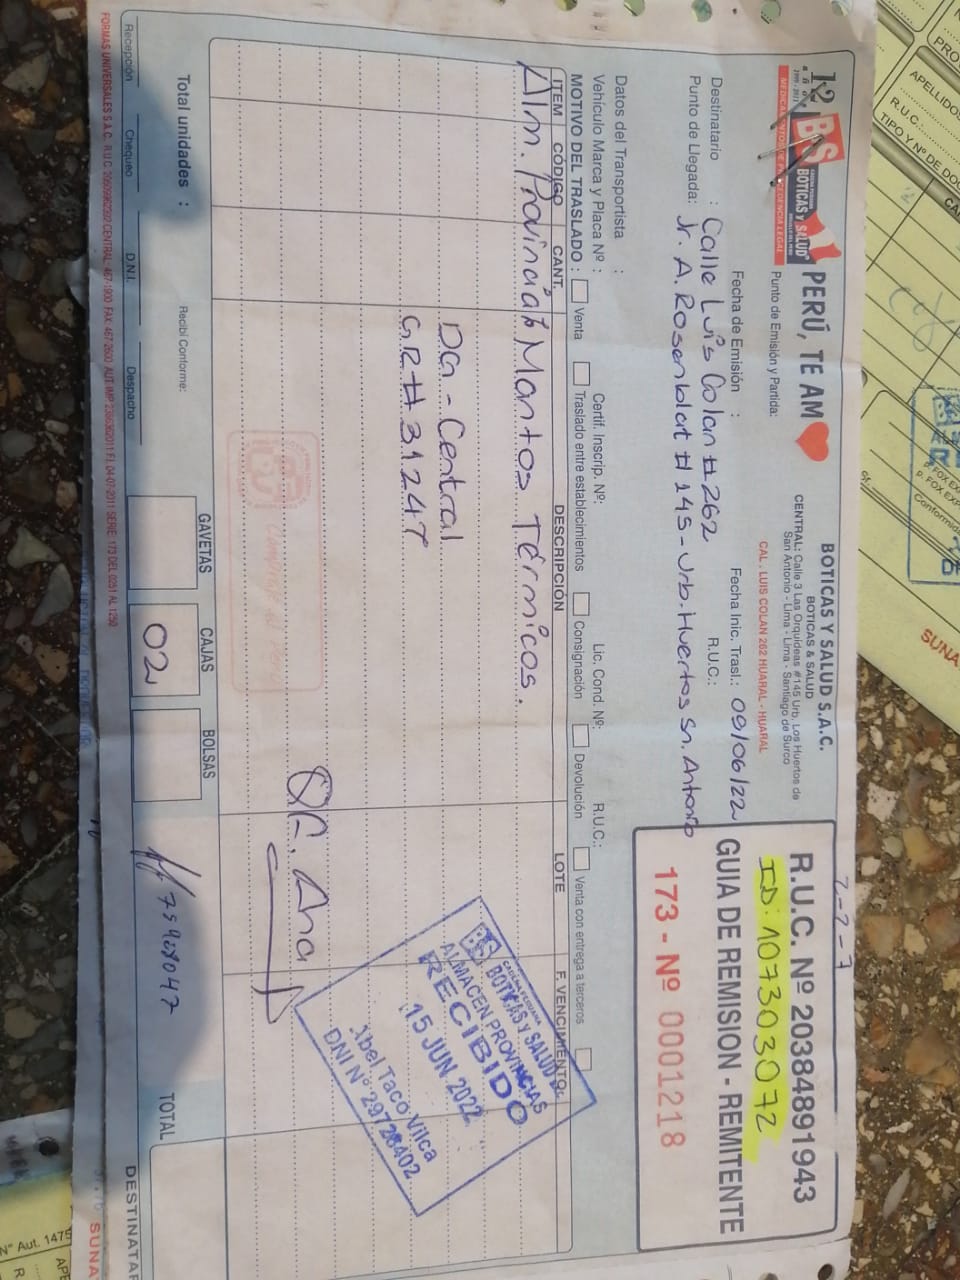 12 años
BS BOTICAS Y SALUD
PERÚ, TE AM
BOTICAS Y SALUD S.A.C.
BOTICAS & SALUD
CENTRAL: Calle 3 Las Orquídeas #145 Urb. Los Huertos de
San Antonio - Lima - Lima - Santiago de Surco
CAL. LUIS COLAN 262 HUARAL - HUARAL
Punto de Emisión y Partida:
2-7-7
R.U.C. Nº 20384891943
ID: 107303072
GUIA DE REMISION - REMITENTE
173 - Nº 0001218
Fecha de Emisión :
Fecha Inic. Trasl.: 09/06/22
Destinatario : Calle Luis Colan #262
R.U.C.:
Punto de Llegada: Jr. A. Rosenblat #145 - Urb. Huertos Sn. Antonio
Datos del Transportista :
Vehículo Marca y Placa Nº :
Certif. Inscrip. Nº:
Lic. Cond. Nº:
R.U.C.:
MOTIVO DEL TRASLADO :
Venta
Traslado entre establecimientos
Consignación
Devolución
Venta con entrega a terceros
ITEM CÓDIGO CANT. DESCRIPCIÓN LOTE F. VENCIMIENTO
Alm. Provincial Mantos Térmicos.
Da - Central
G.R # 31247
QF. Ana
BS BOTICAS Y SALUD
ALMACEN PROVINCIAS
RECIBIDO
15 JUN 2022
Abel Taco Vilca
DNI Nº 29728402
Total unidades :
Recibí Conforme:
GAVETAS CAJAS BOLSAS
02
TOTAL
Recepción Chequeo D.N.I. Despacho
DESTINATAR
FORMAS UNIVERSALES S.A.C.
SUNA
PRO
APELLIDOS
R.U.C.
TIPO Y Nº DE DO
SUNA
Nº Aut. 1475